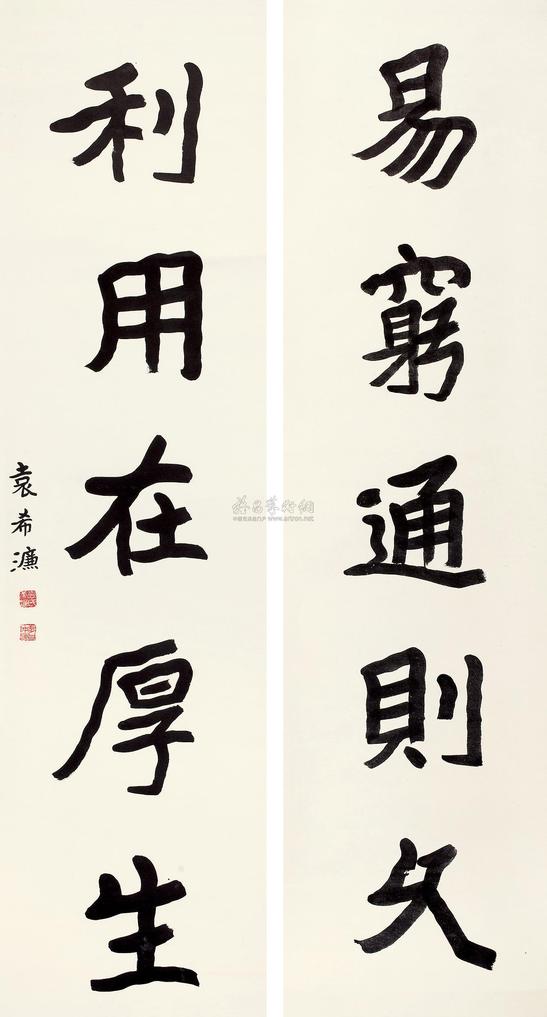 易窮通則久
利用在厚生
袁希濂
www.artron.net